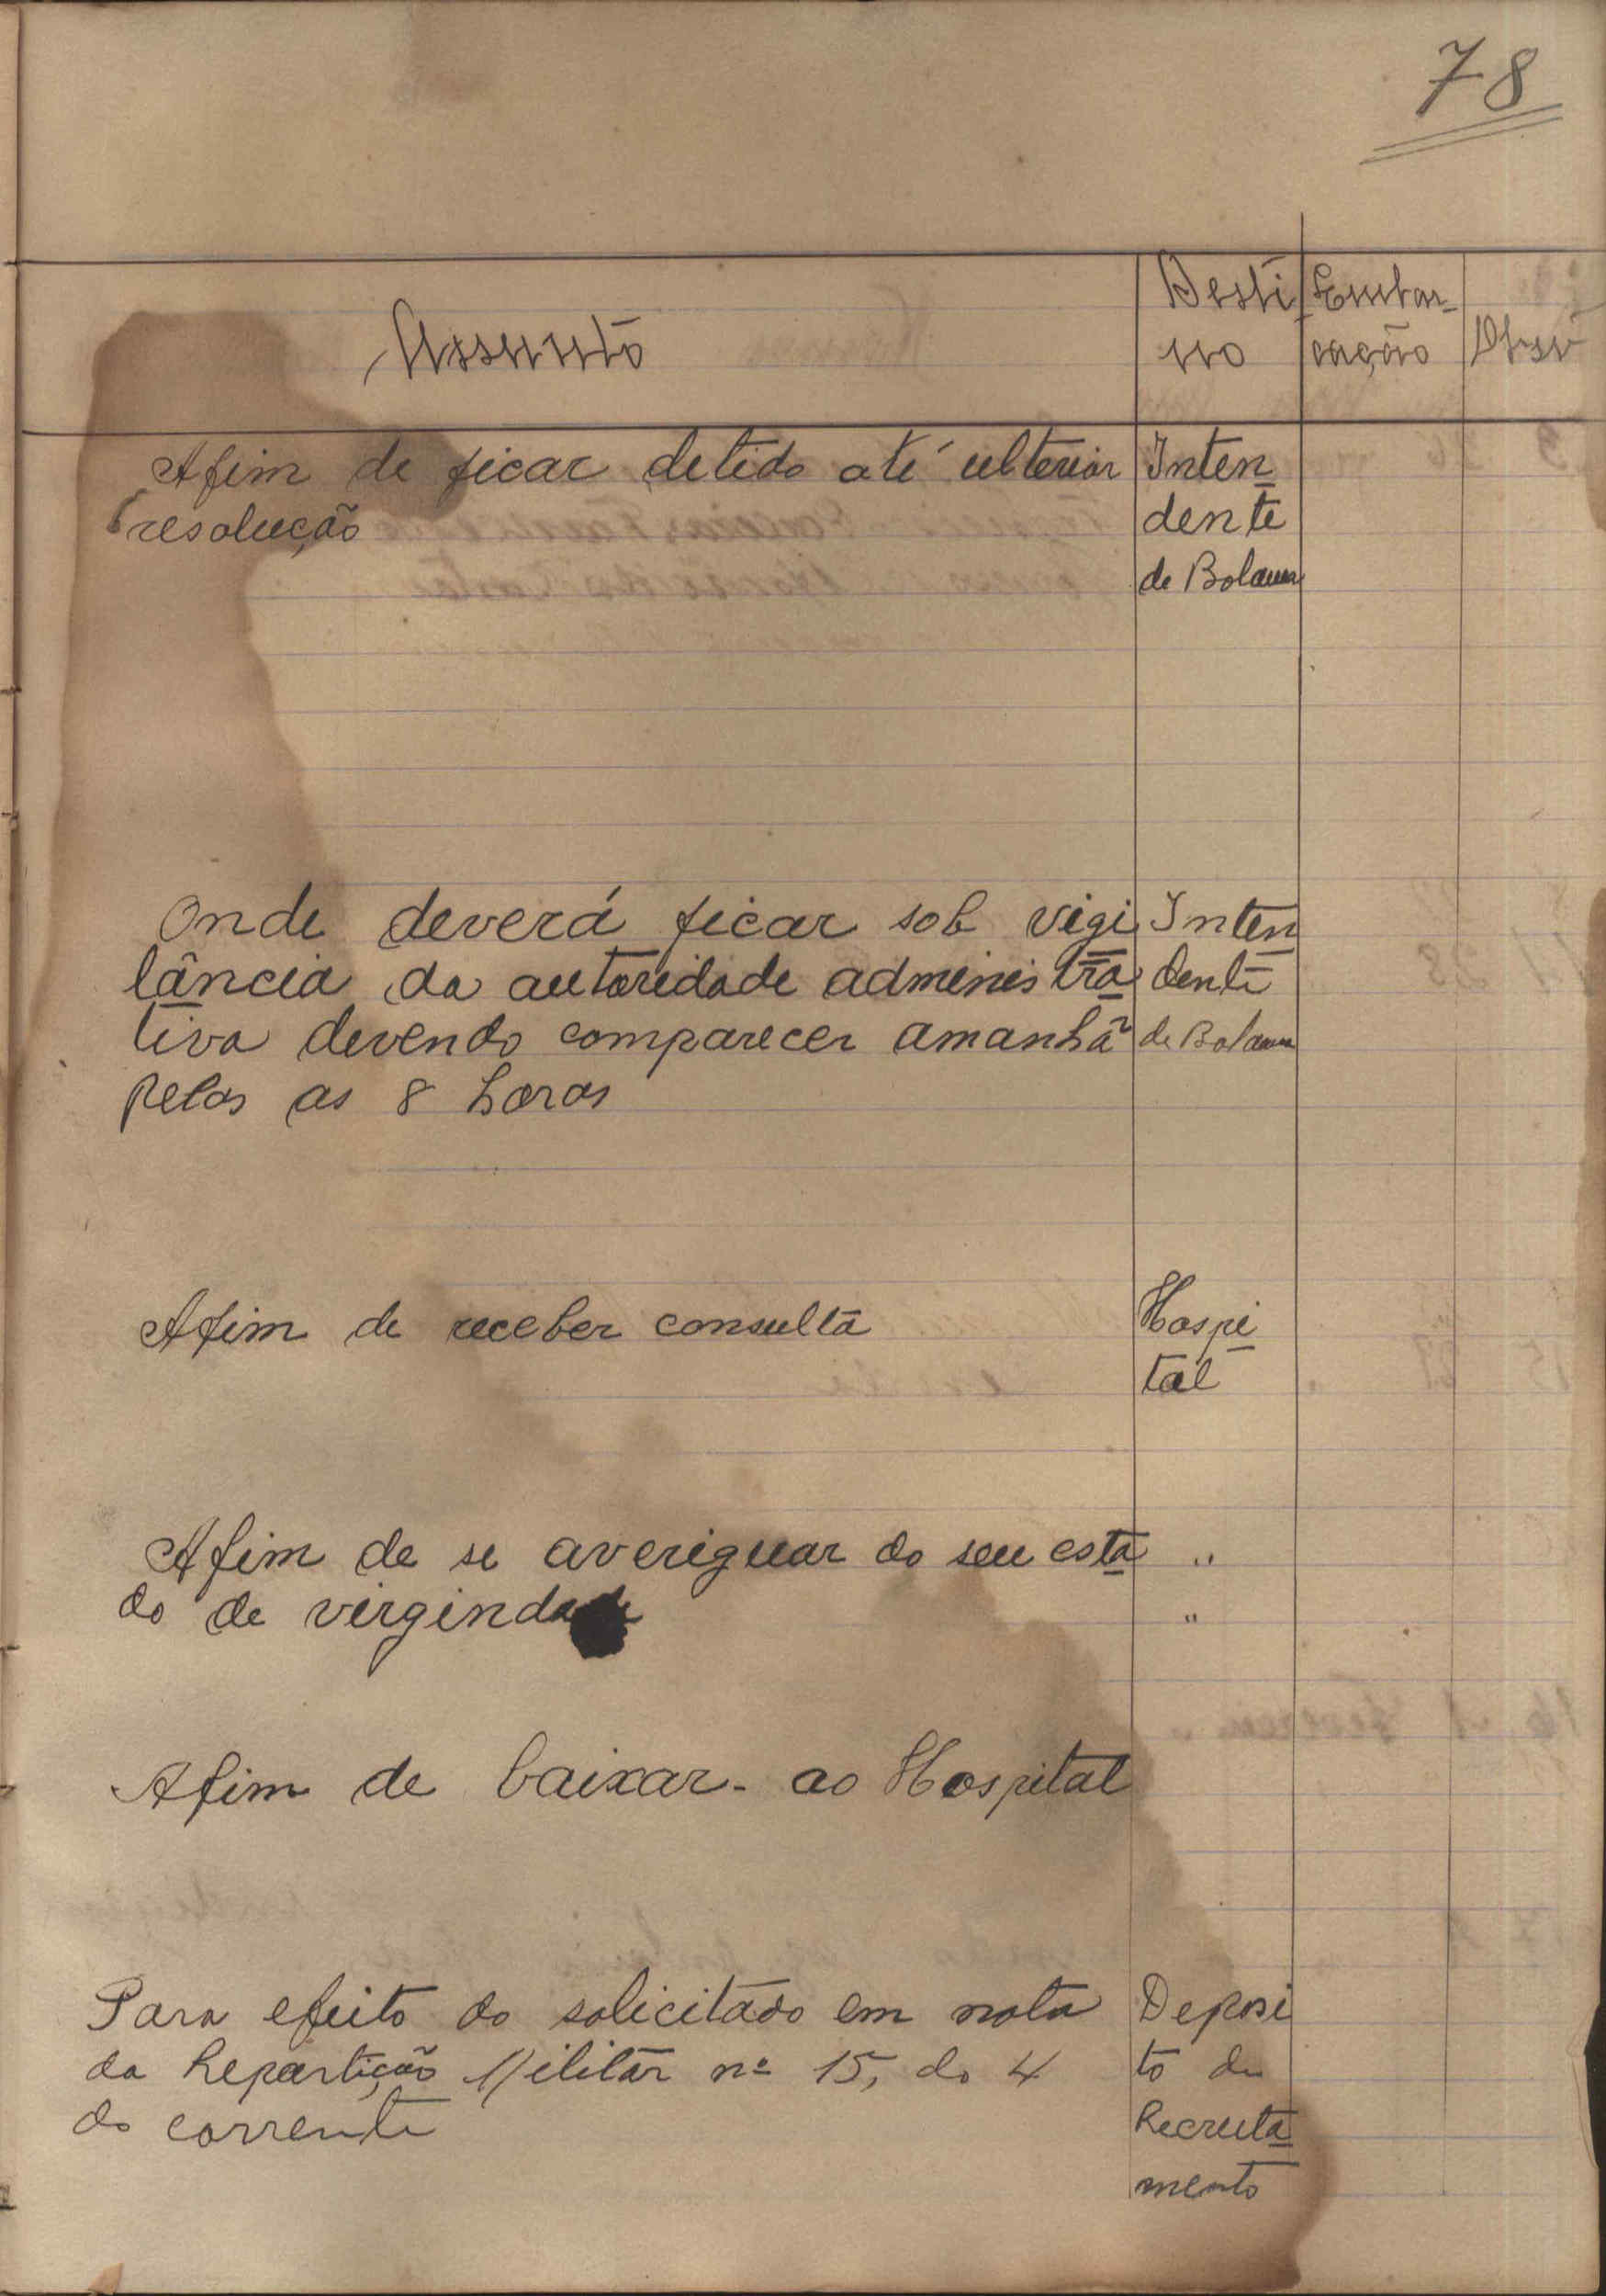 78
Assunto
Desti
no
Embar-
cação
Obsv
Afim de ficar detido até ulterior
resolução
Inten
dente
de Bolama
Onde deverá ficar sob vigi
lância da autoridade administra
tiva devendo comparecer amanhã
pelas as 8 horas
Inten
dente
de Bolama
Afim de receber consulta
Hospi
tal
Afim de se averiguar do seu esta
do de virgindade
"
"
Afim de baixar - ao Hospital
Para efeito do solicitado em nota
da Repartição Militar nº 15, do 4
do corrente
Deposi
to de
Recruta
mento